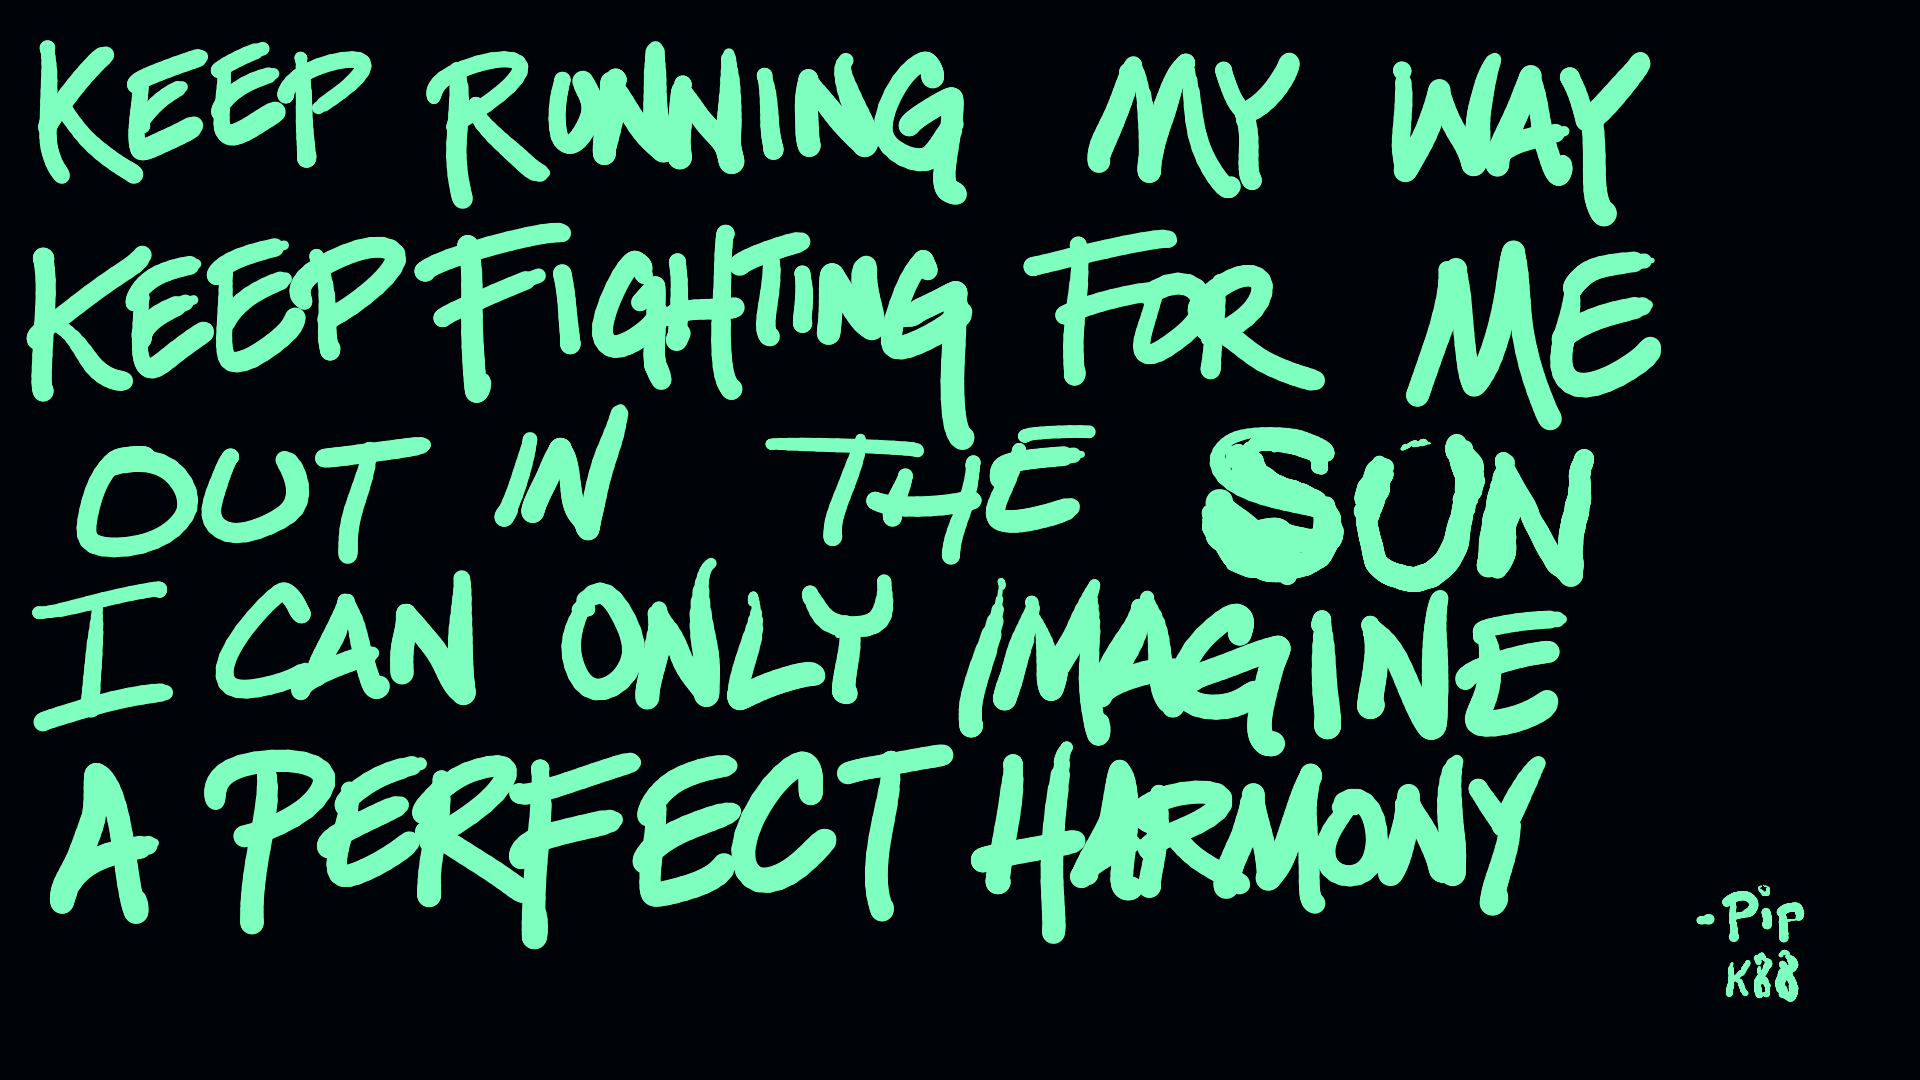 KEEP RUNNING MY WAY
KEEP FIGHTING FOR ME
OUT IN THE SUN
I CAN ONLY IMAGINE
A PERFECT HARMONY
-Pip
K88